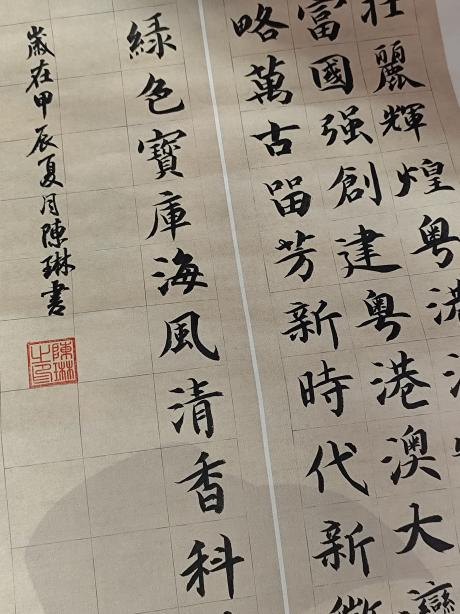 麗輝煌粵港
富國强創建粵港澳大灣
略萬古留芳新時代新徵
綠色寶庫海風清香科
歲在甲辰夏月陳琳書
陳琳之印